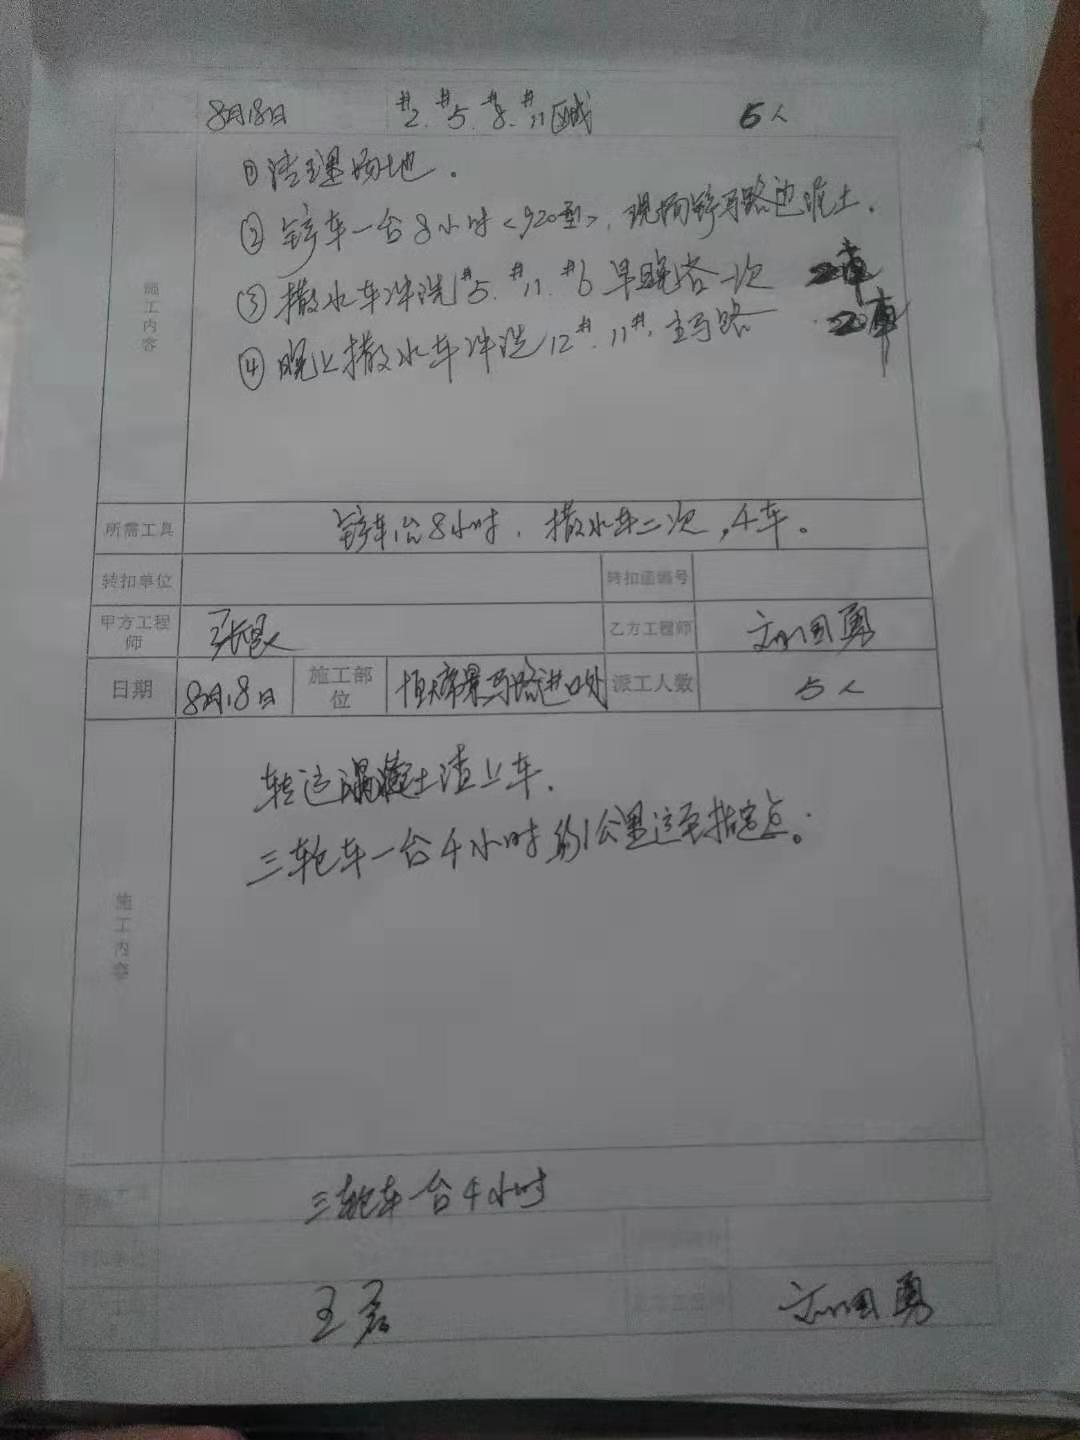 8月18日 #2. #5. #8. #11区域 5人
①清理场地.
②铲车一台8小时<920型>, 现场铲马路边泥土.
施工内容
③撒水车冲洗#5. #11. #6早晚各一次 2车
④晚上撒水车冲洗12#. 11#. 主马路 2车
所需工具 铲车1台8小时, 撒水车二次, 4车。
转扣单位 转扣函编号
甲方工程师 乙方工程师 刘国勇
日期 8月18日 施工部位 马路进口处 派工人数 5人
转运混凝土渣上车.
三轮车一台4小时约1公里运至指定点。
施工内容
三轮车一台4小时
王君 刘国勇